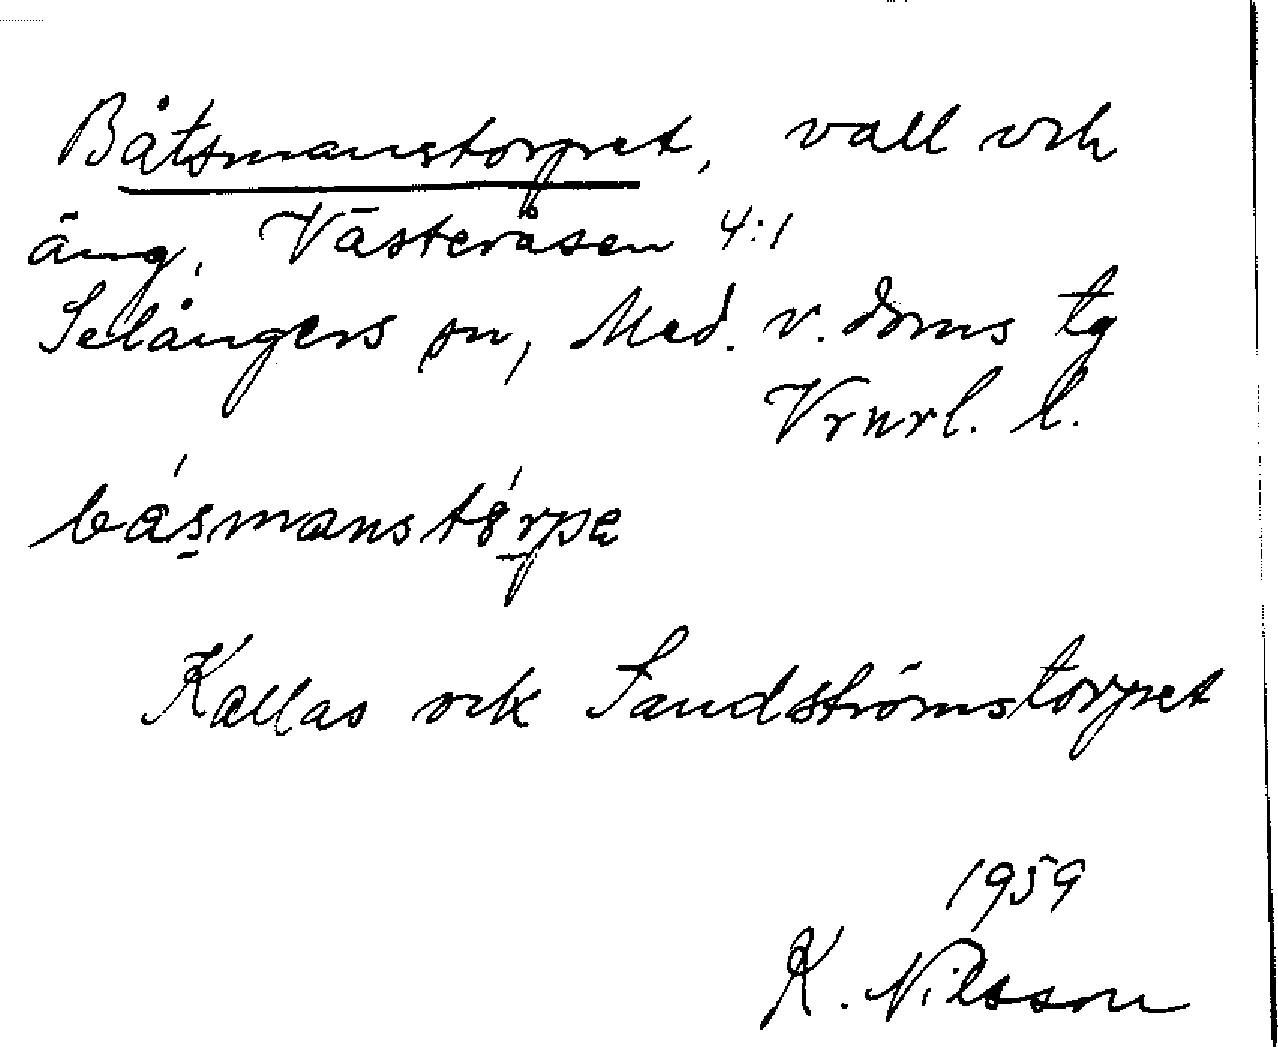 Båtsmanstorpet, vall och
äng, Västeråsen 4:1
Selångers sn, Med. v. doms tg
Vrnrl. l.
båsmanstórpa
Kallas ock Sandströmstorpet
1959
K. Nilsson